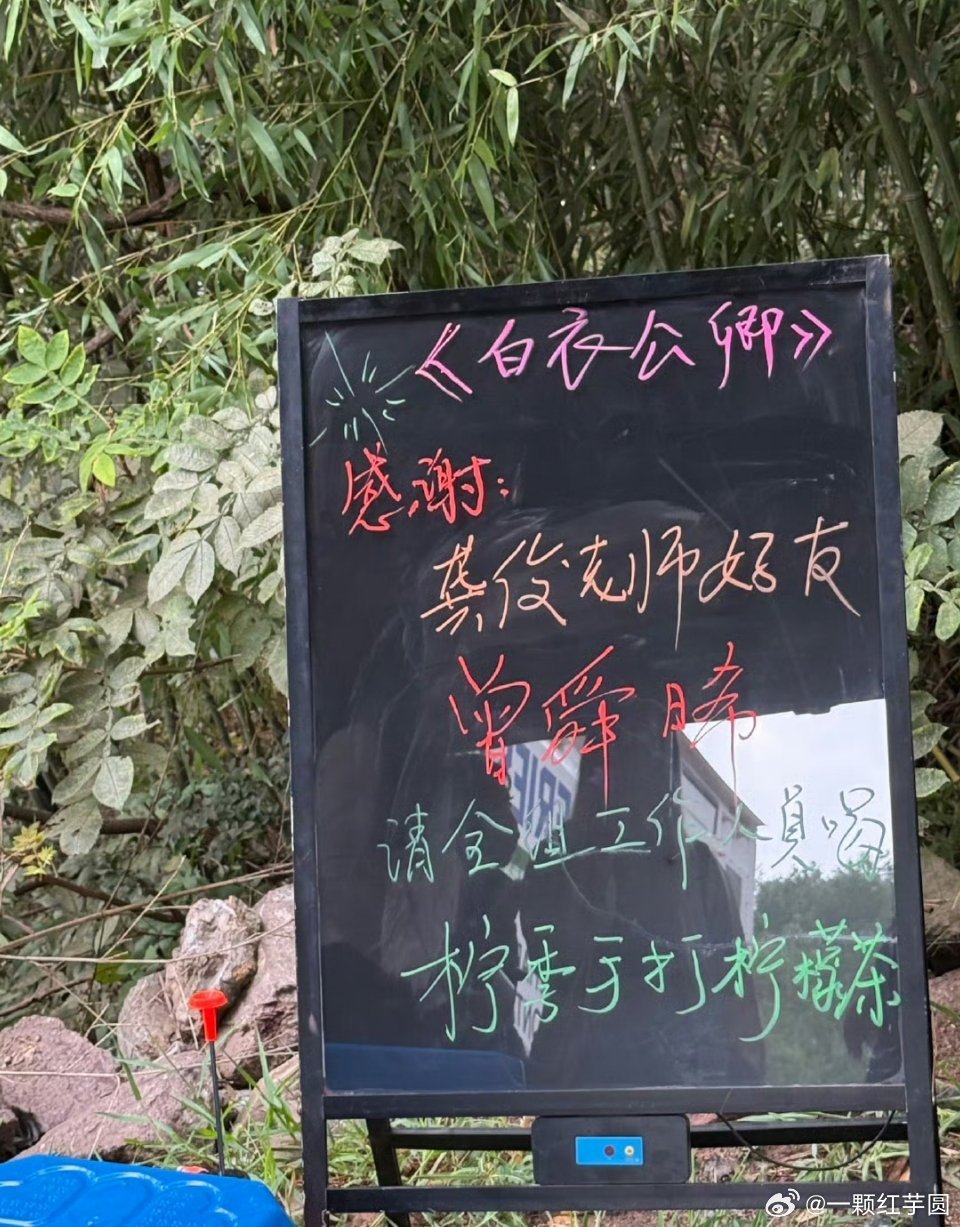 《白衣公卿》
感谢：
龚俊老师好友
曾舜晞
请全组工作人员喝
柠季手打柠檬茶
@一颗红芋圆